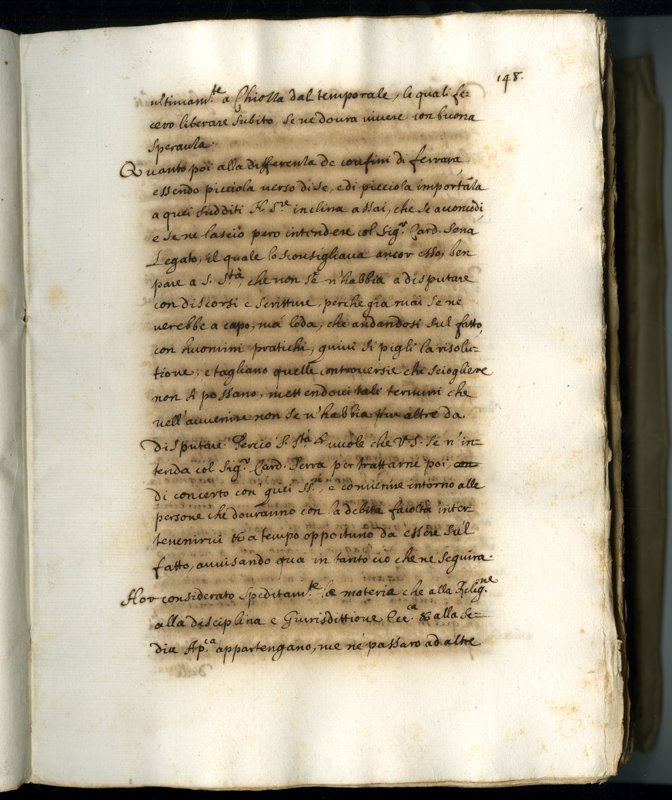 148.
ultimam.te a Chiozza dal temporale, le quali fe-
cero liberare subito, se ne dovrà vivere con buona
speranza.
Quanto poi alla differenza de confini di ferrara
essendo picciola verso di se, e di picciola importāza
a quei sudditi N. S.re inclina assai, che se accomodi
e se ne lasciò pero intendere col Sig.r Card. 
Legato, il quale lo sconsigliava ancor esso, ben
pare a S. S.tà, che non se n'habbia a disputare
con discorsi e scritture, perche gia mai se ne
verebbe a capo, mà loda, che andandosi sul fatto
con huomini pratichi, quivi si pigli la risolu-
tione, e tagliano quelle controversie che sciogliere
non si possano, mettendovi tali termini che
nell'avvenire non se n'habbia più altro da
disputare. Percio S. S.tà vuole che V.S. se n'in-
tenda col Sig.r Card. Serra per trattarne poi con
di concerto con quei SS.ri, e convenire intorno alle
persone che dovranno con la debita facoltà inter-
tenervi a tempo opportuno da essere sul
fatto, avvisando qua in tanto ciò che ne seguira.
Hor considerato speditam.te le materie che alla Relig.ne
alla disciplina e Giurisdittione Ecc.ca & alla Se-
dia Ap.ca appartengano, me ne passaro ad altre
delle